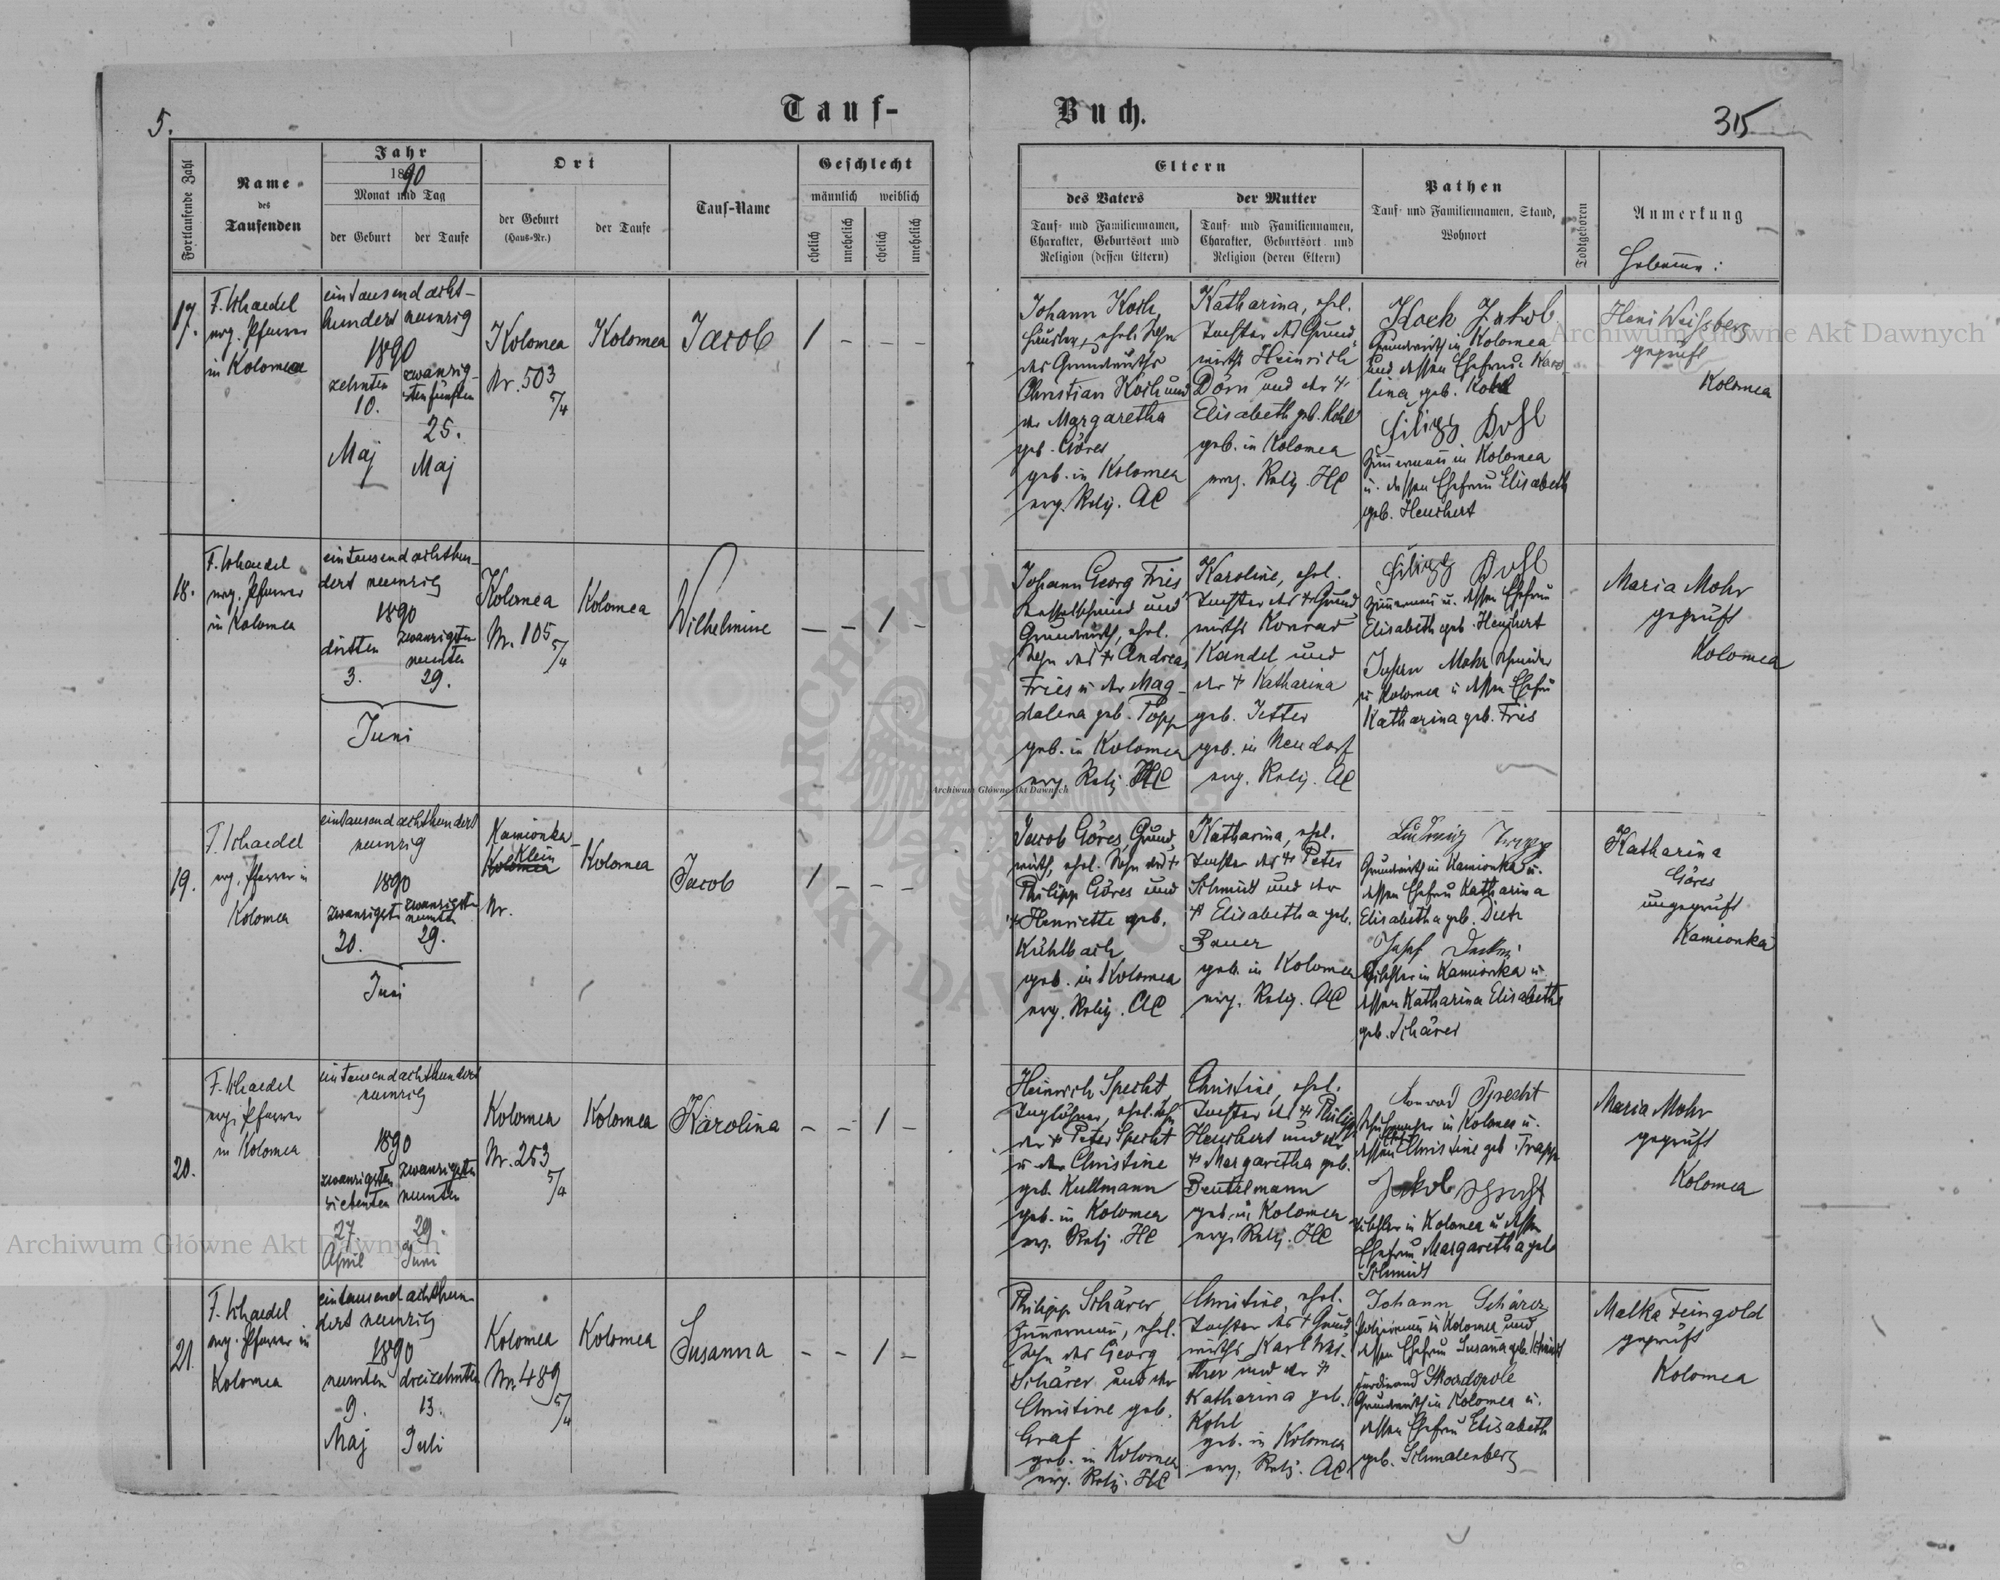 5.
Tauf-
Buch.
315
Fortlaufende Zahl
Name
des
Taufenden
Jahr
1890
Monat und Tag
der Geburt
der Taufe
Ort
der Geburt
(Haus-Nr.)
der Taufe
Tauf-Name
Geschlecht
männlich
weiblich
ehelich
unehelich
ehelich
unehelich
Eltern
des Vaters
Tauf- und Familiennamen,
Charakter, Geburtsort und
Religion (dessen Eltern)
der Mutter
Tauf- und Familiennamen,
Charakter, Geburtsort und
Religion (deren Eltern)
Pathen
Tauf- und Familiennamen, Stand,
Wohnort
Todtgeboren
Anmerkung
Hebamme:
17.
F. Schaedel
evg. Pfarrer
in Kolomea
eintausendacht-
hundert neunzig
1890
zehnten
10.
Maj
zwanzig-
sten fünften
25.
Maj
Kolomea
Nr. 503
5/4
Kolomea
Jacob
1 - - -
Johann Koch,
Häusler, ehel. Sohn
des Grundwirths
Christian Koch und
der Margaretha
geb. Göres
geb. in Kolomea
evg. Relig. AC
Katharina, ehel.
Tochter des Grund-
wirths Heinrich
Dorn und der +
Elisabeth geb. Kohl
geb. in Kolomea
evg. Relig. HC
Koch Jakob
Grundwirth in Kolomea
und dessen Ehefrau Karo-
lina, geb. Kohl
Filipp Kohl
Zimmermann in Kolomea
u. dessen Ehefrau Elisabeth
geb. Heuchert
Heni Weissberg
geprüft
Kolomea
18.
F. Schaedel
evg. Pfarrer
in Kolomea
eintausendachthun-
dert neunzig
1890
dritten
3.
zwanzigsten
neunten
29.
Juni
Kolomea
Nr. 105
5/4
Kolomea
Wilhelmine
- - 1 -
Johann Georg Fries
Kesselschmied und
Grundwirth, ehel.
Sohn des + Andreas
Fries u. der Mag-
dalena geb. Popp
geb. in Kolomea
evg. Relig. HC
Karoline, ehel.
Tochter des + Grund-
wirths Konrad
Kandel und
der + Katharina
geb. Jetter
geb. in Neudorf
evg. Relig. AC
Filipp Kohl
Zimmermann u. dessen Ehefrau
Elisabeth geb. Heuchert
Johann Mohr Schneider
in Kolomea u. dessen Ehefrau
Katharina geb. Fris
Maria Mohr
geprüft
Kolomea
19.
F. Schaedel
evg. Pfarrer in
Kolomea
eintausendachthundert
neunzig
1890
zwanzigsten
20.
zwanzigsten
neunten
29.
Juni
Kamionka
Klein
Kolomea
Nr.
Kolomea
Jacob
1 - - -
Jacob Göres, Grund-
wirth, ehel. Sohn des +
Philipp Göres und
+ Henriette geb.
Kühlbach
geb. in Kolomea
evg. Relig. AC
Katharina, ehel.
Tochter des + Peter
Schmidt und der
+ Elisabetha geb.
Bauer
geb. in Kolomea
evg. Relig. AC
Ludwig
Grundwirth in Kamionka u.
dessen Ehefrau Katharina
Elisabetha geb. Dietz
Josef
in Kamionka u.
dessen Katharina Elisabetha
geb. Schärer
Katharina
Göres
ungeprüft
Kamionka
20.
F. Schaedel
evg. Pfarrer
in Kolomea
eintausendachthundert
neunzig
1890
zwanzigsten
siebenten
27.
April
zwanzigsten
neunten
29.
Juni
Kolomea
Nr. 253
5/4
Kolomea
Karolina
- - 1 -
Heinrich Specht,
Taglöhner, ehel. Sohn
der + Peter Specht
u. der Christine
geb. Kullmann
geb. in Kolomea
evg. Relig. HC
Christine, ehel.
Tochter des + Philipp
Heuchert und der
+ Margaretha geb.
Beutelmann
geb. in Kolomea
evg. Relig. HC
Konrad Specht
in Kolomea u.
dessen Christine geb. Trapp
Jakob Specht
in Kolomea u. dessen
Ehefrau Margaretha geb.
Schmidt
Maria Mohr
geprüft
Kolomea
21.
F. Schaedel
evg. Pfarrer in
Kolomea
eintausend achthun-
dert neunzig
1890
neunten
9.
Maj
dreizehnten
13.
Juli
Kolomea
Nr. 489
5/4
Kolomea
Susanna
- - 1 -
Philipp Schärer,
Zimmermann, ehel.
Sohn des Georg
Schärer und der
Christine geb.
Graf
geb. in Kolomea
evg. Relig. HC
Christine, ehel.
Tochter des + Grund-
wirths Karl Wal-
ther und der +
Katharina geb.
Kohl
geb. in Kolomea
evg. Relig. AC
Johann Schärer
in Kolomea und
dessen Ehefrau Susana geb. Schmidt
Ferdinand Skordopole
Grundwirth in Kolomea u.
dessen Ehefrau Elisabeth
geb. Schmalenberg
Malka Feingold
geprüft
Kolomea
Archiwum Główne Akt Dawnych
Archiwum Główne Akt Dawnych
Archiwum Główne Akt Dawnych
ARCHIWUM
AKT DAWNYCH